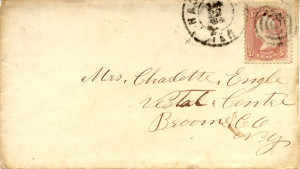 Mrs. Charlotte, Engle
Vestal, Center
Broome, Co
N.Y.